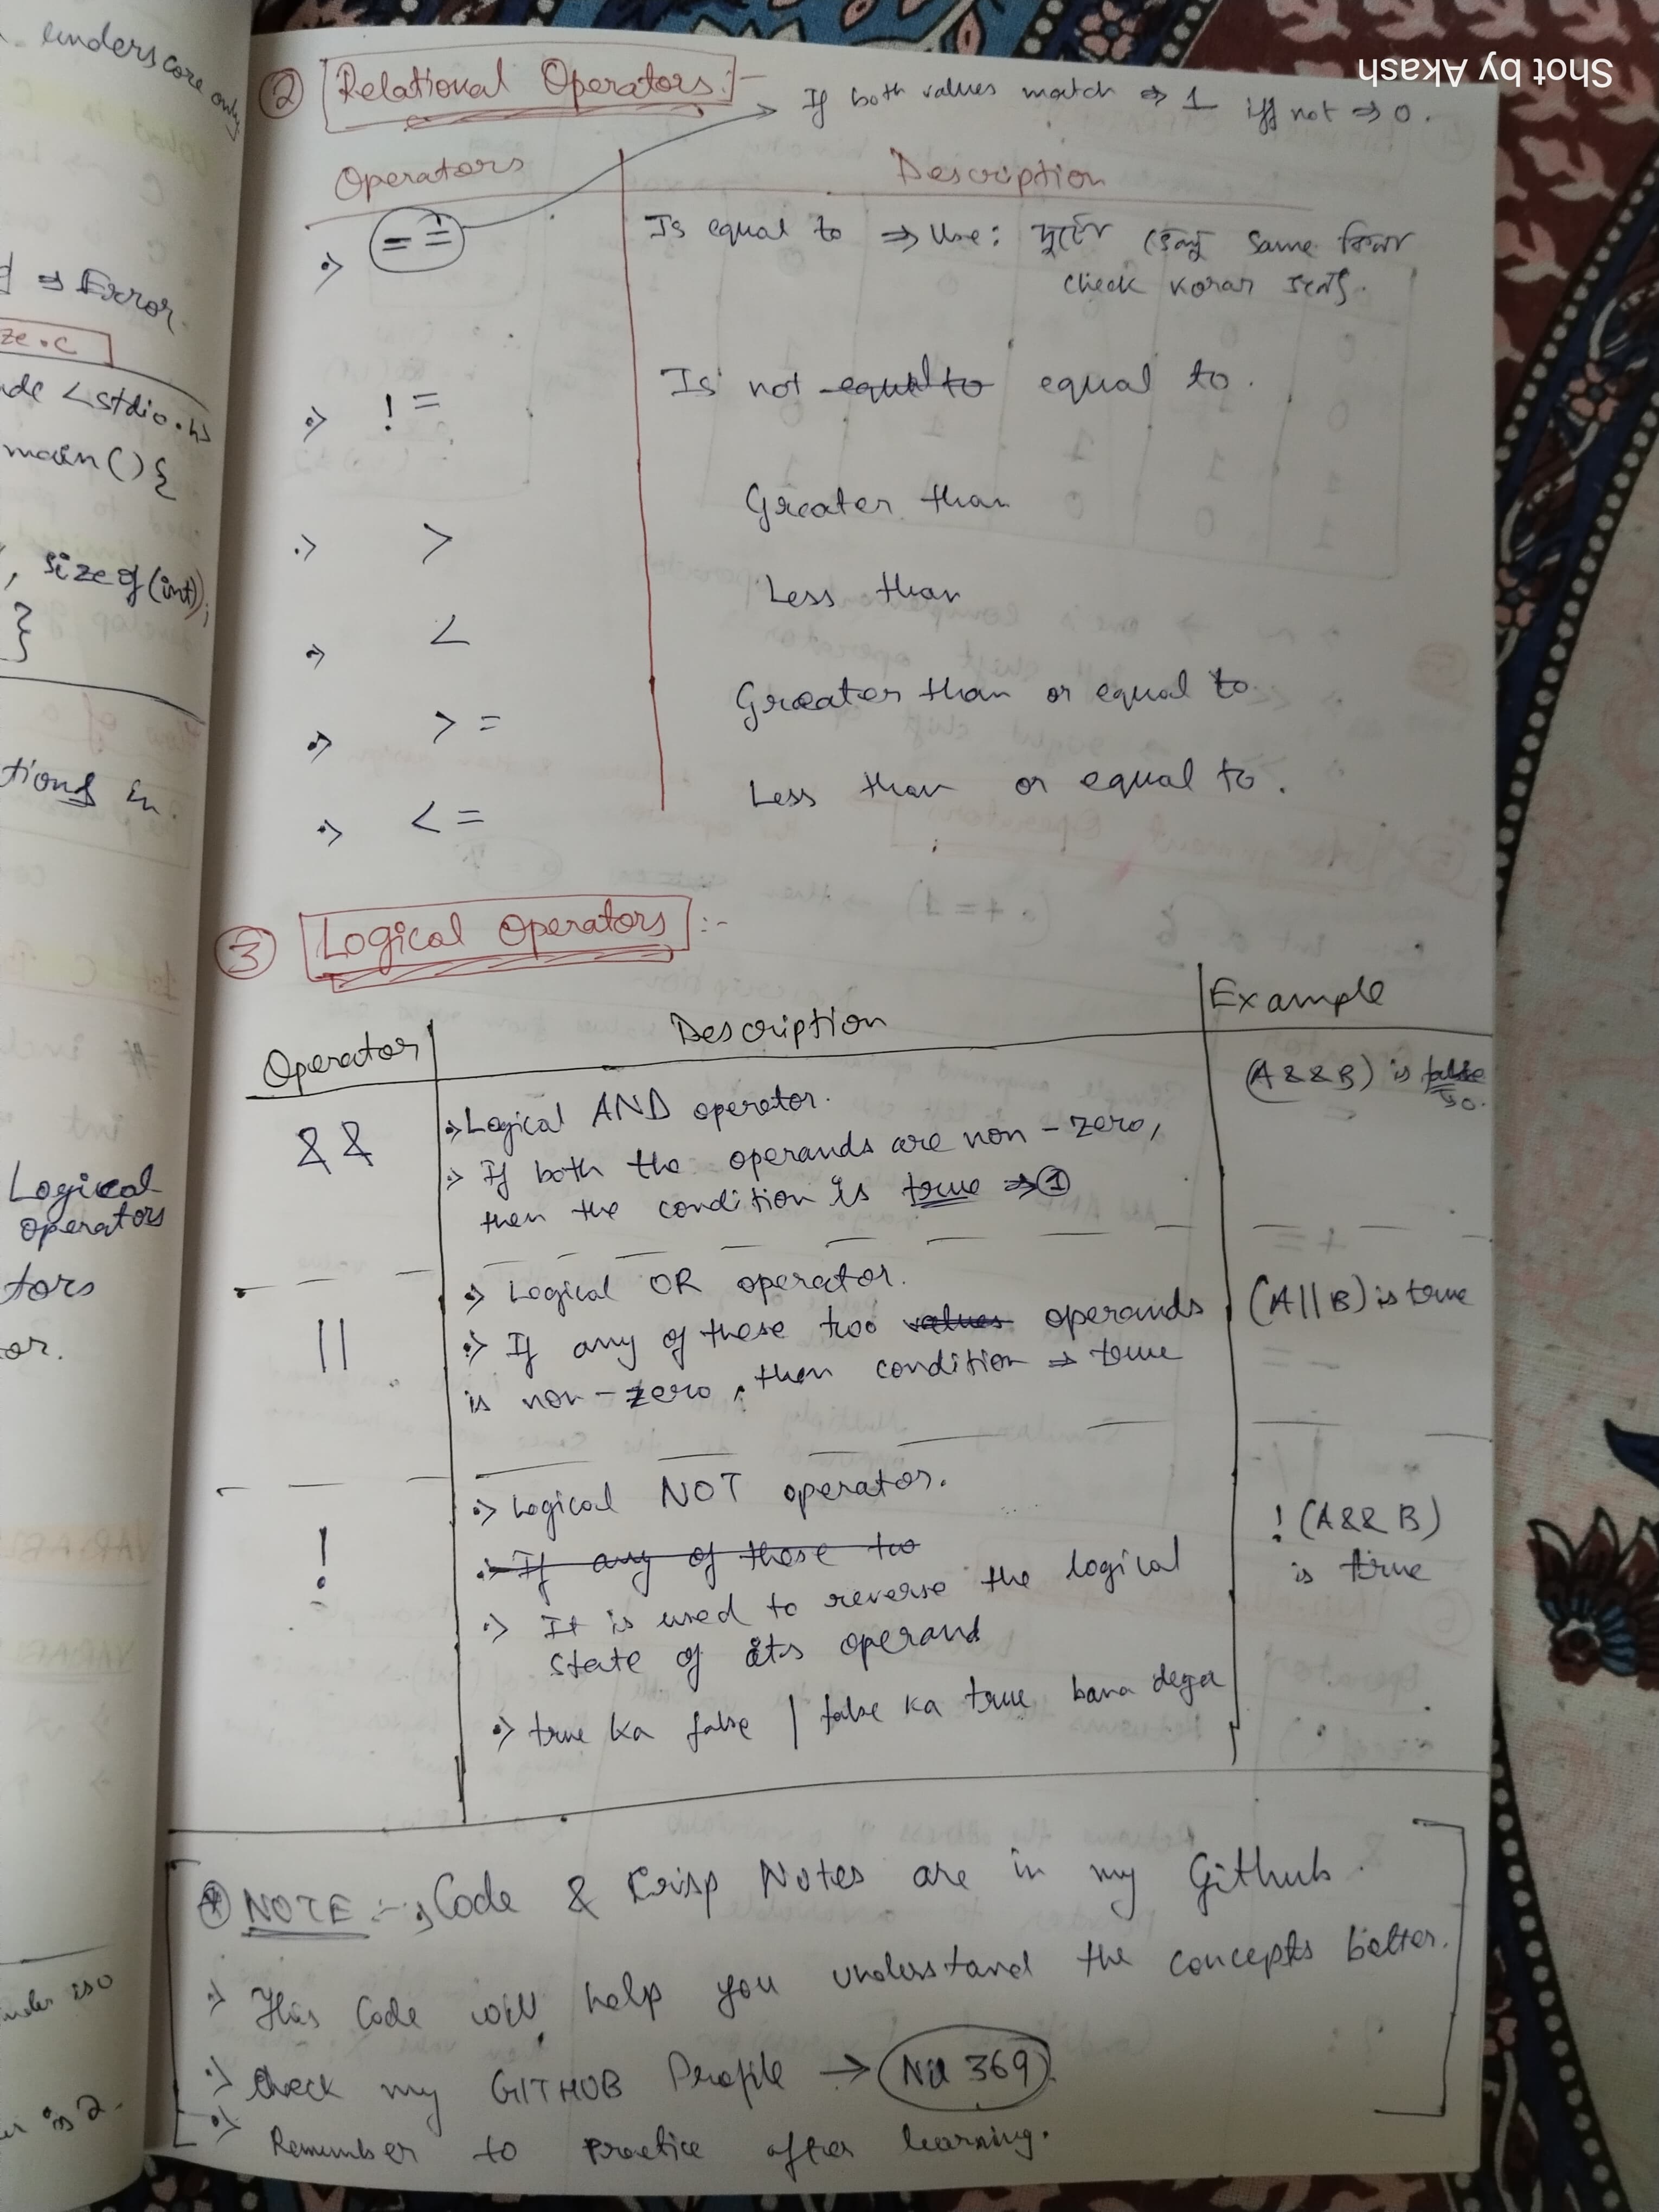 Shot by Akash
underscore only
⇒ Error.
ze.c
ude <stdio.h>
main(){
, sizeof(int));
}
tions in
Logical
operators
tors
or.
② Relational Operators :-
If both values match ⇒ 1 iff not ⇒ 0.
Operators Description
:> == Is equal to ⇒ Use: same কিনা
check korar
:> != Is not equal to equal to.
:> > Greater than
:> < Less than
:> >= Greater than or equal to.
:> <= Less than or equal to.
③ Logical Operators :-
Operator Description Example
&& :> Logical AND operator. (A && B) is false
:> If both the operands are non-zero,
then the condition is true ⇒ ①
|| :> Logical OR operator.
:> If any of these two values operands (A||B) is true
is non-zero, then condition ⇒ true
! :> Logical NOT operator.
:> If any of these two
!(A&& B)
is true
:> It is used to reverse the logical
state of its operand
:> true ka false | false ka true bana dega
* NOTE :-> Code & Crisp Notes are in my Github.
:> This Code will help you understand the concepts better.
:> Check my GITHUB Profile →
:> Remember to Practice after learning.